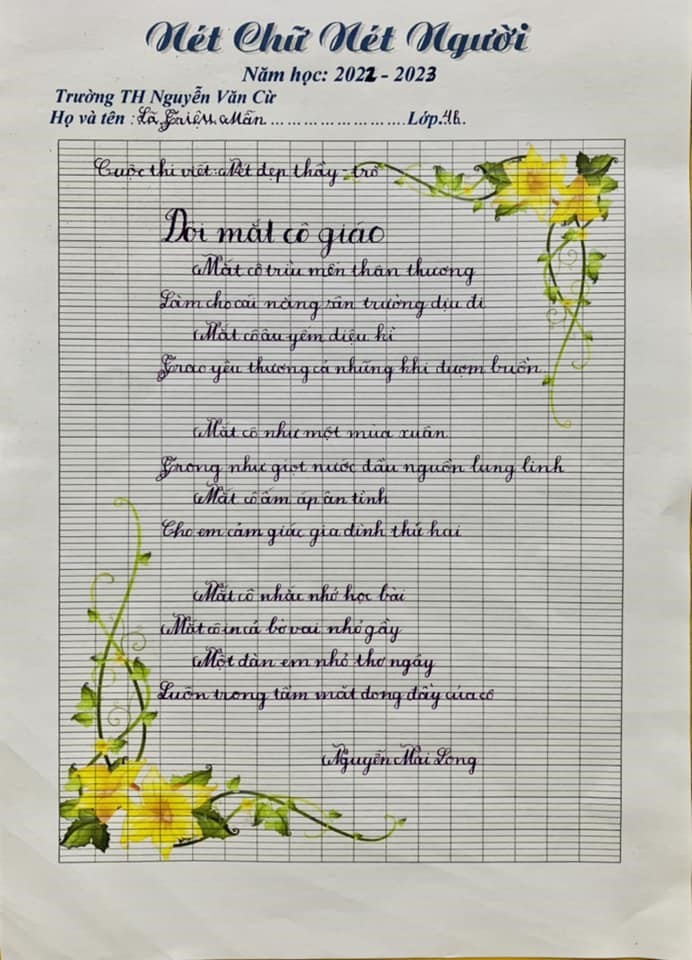 Nét Chữ Nét Người
Năm học: 2022 - 2023
Trường TH Nguyễn Văn Cừ
Họ và tên : Lã Triệu Mẫn ........................Lớp.4b.
Cuộc thi viết: Nét đẹp thầy - trò
Đôi mắt cô giáo
Mắt cô trìu mến thân thương
Làm cho cái nắng sân trường dịu đi
Mắt cô âu yếm diệu kì
Trao yêu thương cả những khi đượm buồn
Mắt cô như một mùa xuân
Trong như giọt nước đầu nguồn lung linh
Mắt cô ấm áp ân tình
Cho em cảm giác gia đình thứ hai
Mắt cô nhắc nhớ học bài
Mắt cô in cả bờ vai nhỏ gầy
Một đàn em nhỏ thơ ngây
Luôn trong tầm mắt dong đầy của cô
Nguyễn Mai Long